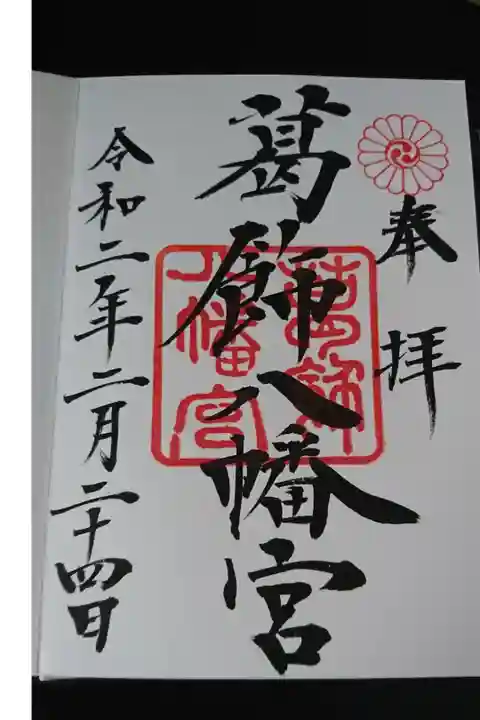 奉拝
葛飾八幡宮
葛飾
八幡宮
令和二年二月二十四日